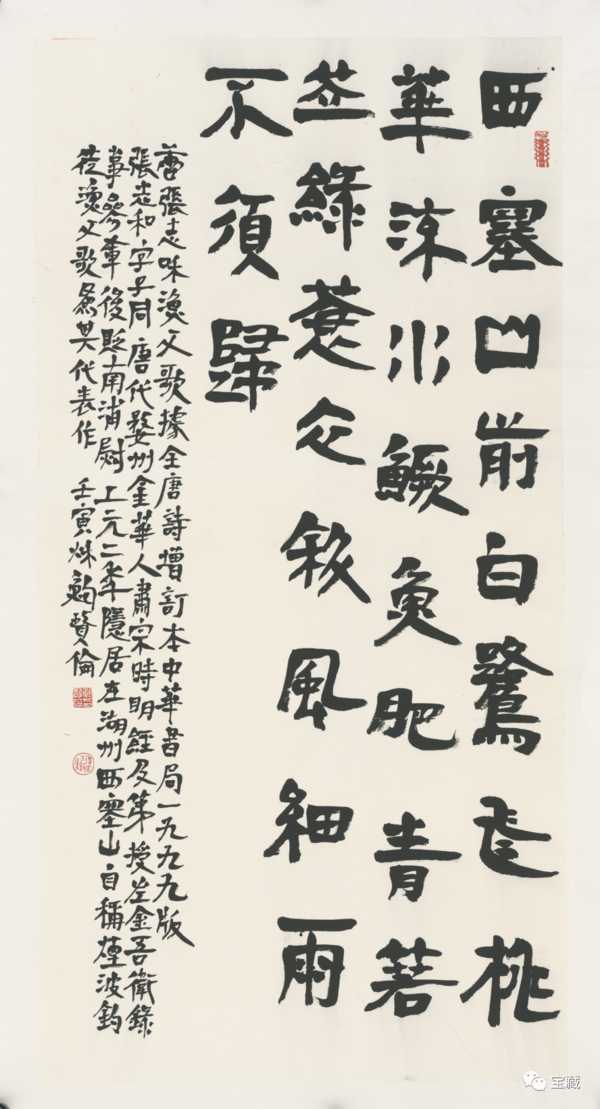 西塞山前白鷺飛桃
華流水鱖魚肥青箬
笠綠蓑衣斜風細雨
不須歸
唐張志咊漁父歌據全唐詩增訂本中華書局一九九九版
張志和字子同唐代婺州金華人肅宗時明經及第授左金吾衛錄
事參軍後貶南浦尉上元二年隱居在湖州西塞山自稱煙波釣
徒漁父歌爲其代表作 壬寅秌鮑賢倫
宝藏